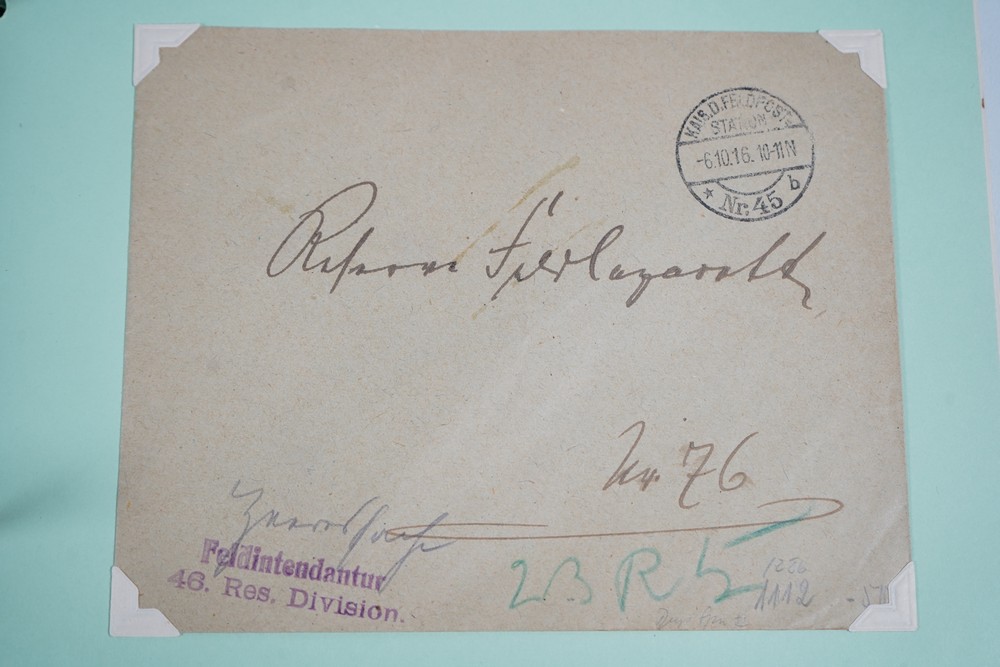 KAIS.D.FELDPOST-
STATION
-6.10.16. 10-11N
* Nr. 45 b
Reserve Feldlazarett
Nr. 76
Heeressache
Feldintendantur
46. Res. Division.
2BR5
1226
1112